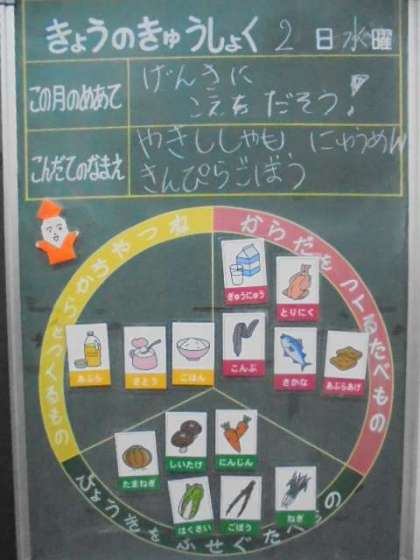 きょうのきゅうしょく 2日 水曜
この月のめあて
げんきに
こえをだそう!
こんだてのなまえ
やきししゃも、にゅうめん
きんぴらごぼう
ねつやちからをつくるもの
からだをつくるたべもの
びょうきをふせぐたべもの
ぎゅうにゅう
とりにく
あぶら
さとう
ごはん
こんぶ
さかな
あぶらあげ
たまねぎ
しいたけ
にんじん
はくさい
ごぼう
ねぎ